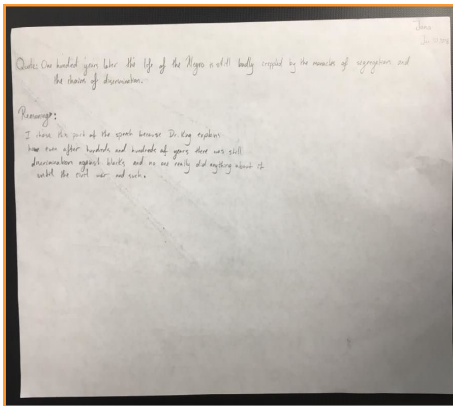 Quote: One hundred years later the life of the Negro is still badly crippled by the manacles of segregation, and
the chains of discrimination.
Reasoning:
I chose this part of the speech because Dr. King explains
how even after hundreds and hundreds of years there was still
discrimination against blacks and no one really did anything about it
until the civil war, and such.